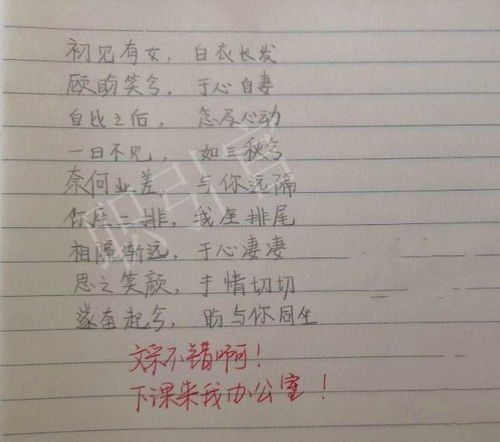 初见有女，白衣长发
顾盼笑兮，于心自妻
自此之后，怎及心动
一日不见，如三秋兮
奈何业差，与你远隔
你座三排，我座排尾
相隔渐远，于心凄凄
思之笑颜，于情切切
遂奋起兮，盼与你同生
文字不错啊！
下课来我办公室！